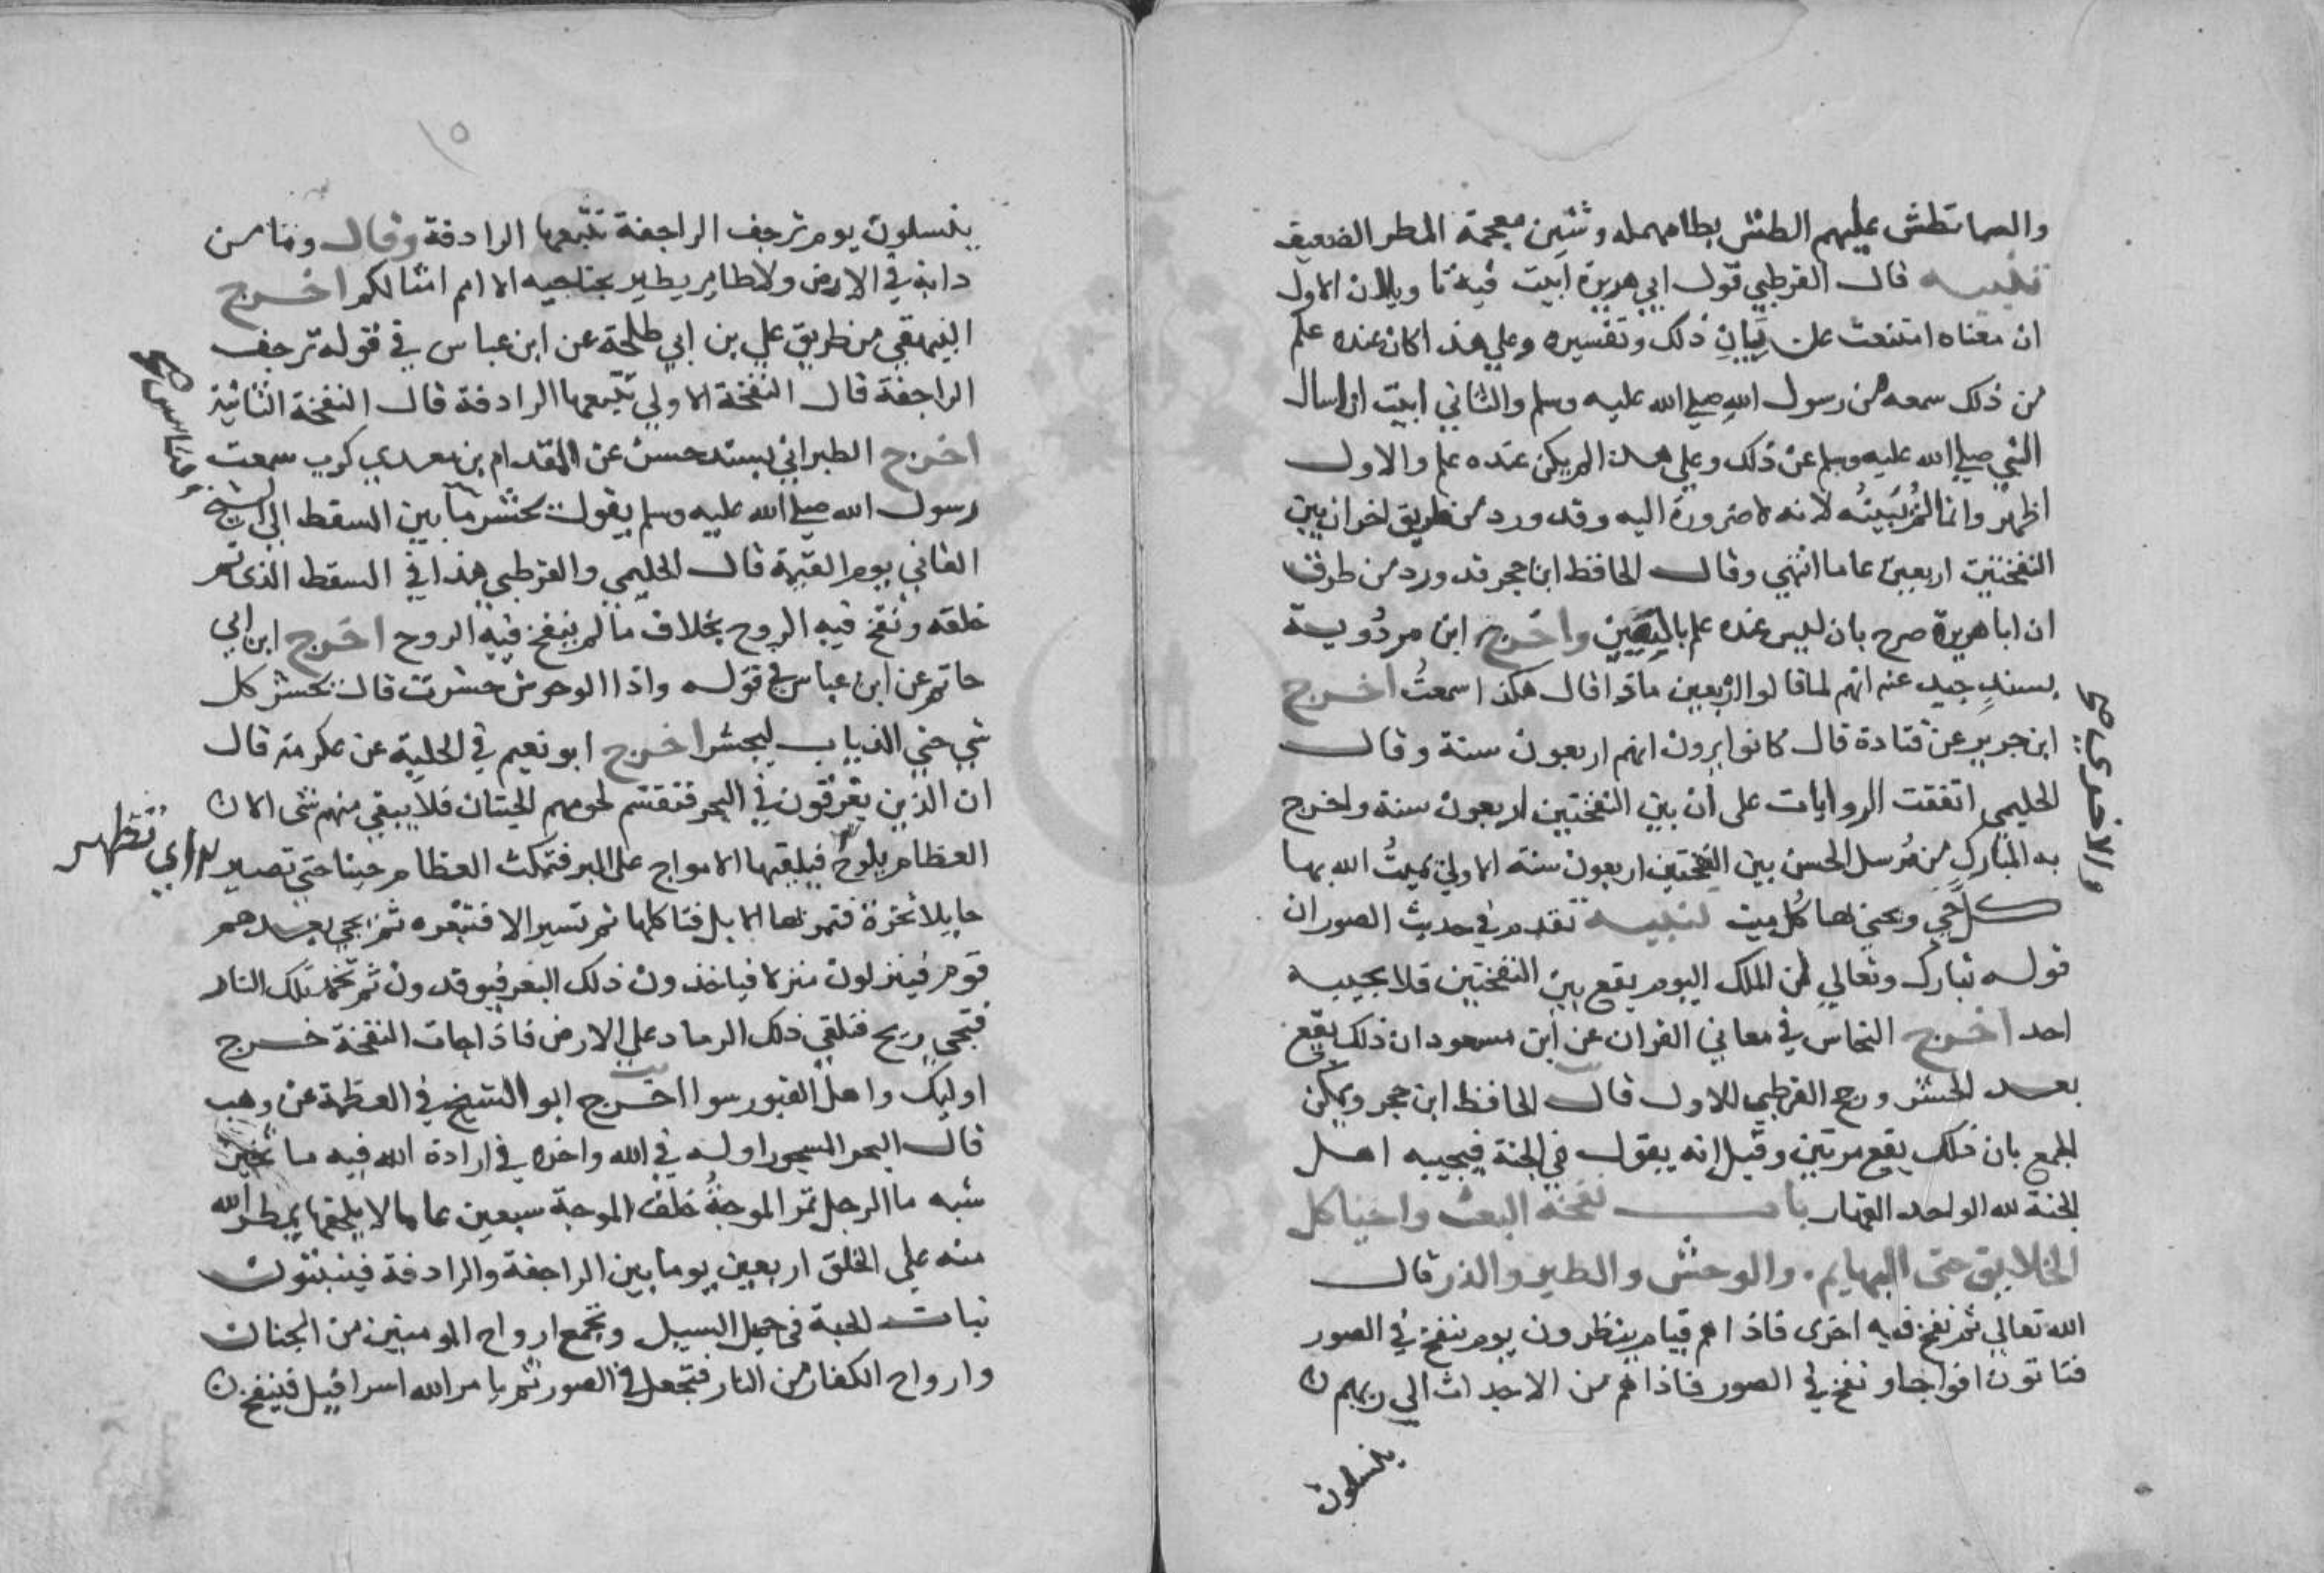 والسما تطش عليهم الطش بطا مهمله وشين معجمة المطر الضعيف
تنبيه قال القرطبي قول ابي هريرة ابيت فيه تاويلان الاول
ان معناه امتنعت عن بيان ذلك وتفسيره وعلي هذا كان عنده علم
من ذلك سمعه من رسول الله صلي الله عليه وسلم والثاني ابيت ان اسال
النبي صلي الله عليه وسلم عن ذلك وعلي هذا لم يكن عنده علم والاول
اظهر وانما لم يبينه لانه لا ضرورة اليه وقد ورد من طريق اخر ان بين
النفختين اربعين عاما انتهي وقال الحافظ ابن حجر قد ورد من طرق
ان ابا هريرة صرح بان ليس عنده علم بالتعيين واخرج ابن مردوية
بسند جيد عنه انهم لما قالوا اربعين ماذا قال هكذا سمعت اخرج
ابن جرير عن قتادة قال كانوا يرون انهم اربعون سنة وقال
الحليمي اتفقت الروايات على ان بين النفختين اربعون سنة واخرج
به المبارك من مرسل الحسن بين النفختين اربعون سنة الاولي يميت الله بها
والاخرى يا صح
كل حي ويحيي بها كل ميت تنبيه تقدم في حديث الصور ان
قوله تبارك وتعالي لمن الملك اليوم يقع بين النفختين فلا يجيبه
احد اخرج النحاس في معاني القران عن ابن مسعود ان ذلك يقع
بعد الحشر ورجح القرطبي الاول قال الحافظ ابن حجر ويمكن
الجمع بان ذلك يقع مرتين وقيل انه يقول في الجنة فيجيبه اهل
الجنة لله الواحد القهار باب نفخة البعث واحيا كل
الخلايق حتى البهايم والوحش والطير والذر قال
الله تعالي ثم نفخ فيه اخرى فاذا هم قيام ينظرون يوم ينفخ في الصور
فتاتون افواجا ونفخ في الصور فاذا هم من الاجداث الي ربهم
ينسلون
١٥
ينسلون يوم ترجف الراجفة تتبعها الرادفة وقال وما من
دابة في الارض ولا طاير يطير بجناحيه الا امم امثالكم اخرج
البيهقي من طريق علي بن ابي طلحة عن ابن عباس في قوله ترجف
الراجفة قال النفخة الاولي تتبعها الرادفة قال النفخة الثانية
اخرج الطبراني بسند حسن عن المقدام بن معدي كرب سمعت
رسول الله صلي الله عليه وسلم يقول يحشر ما بين السقط الي الشيخ
الفاني يوم القيمة قال الحليمي والقرطبي هذا في السقط الذي تم
خلقه ونفخ فيه الروح بخلاف ما لم ينفخ فيه الروح اخرج ابن ابي
حاتم عن ابن عباس في قوله واذا الوحوش حشرت قال يحشر كل
شي حتي الذباب ليحشر اخرج ابو نعيم في الحلية عن عكرمة قال
ان الذين يغرقون في البحر فتقتسم لحومهم الحيتان فلا يبقي منهم شى الا
العظام يلوح فيلقيها الامواج على البر فتمكث العظام حينا حتي تصير
اي تظهر
حايلا نخرة فتمر بها الابل فتاكلها ثم تسير الا فتبعره ثم يجي بعدهم
قوم فينزلون منزلا فياخذون ذلك البعر فيوقدون ثم تخمد تلك النار
فتجي ريح فتلقي ذلك الرماد علي الارض فاذا جات النفخة خرج
اوليك واهل القبور سوا اخرج ابو الشيخ في العظمة عن وهب
قال البحر المسجور اوله في الله واخره في ارادة الله فيه ما
شبه ما الرجل تمر الموجة خلف الموجة سبعين عاما لا يلحقها يمطر الله
منه علي الخلق اربعين يوما بين الراجفة والرادفة فينبتون
نبات الحبة في حميل السيل وتجمع ارواح المومنين من الجنان
وارواح الكفار من النار فتجعل في الصور ثم يامر الله اسرافيل فينفخ